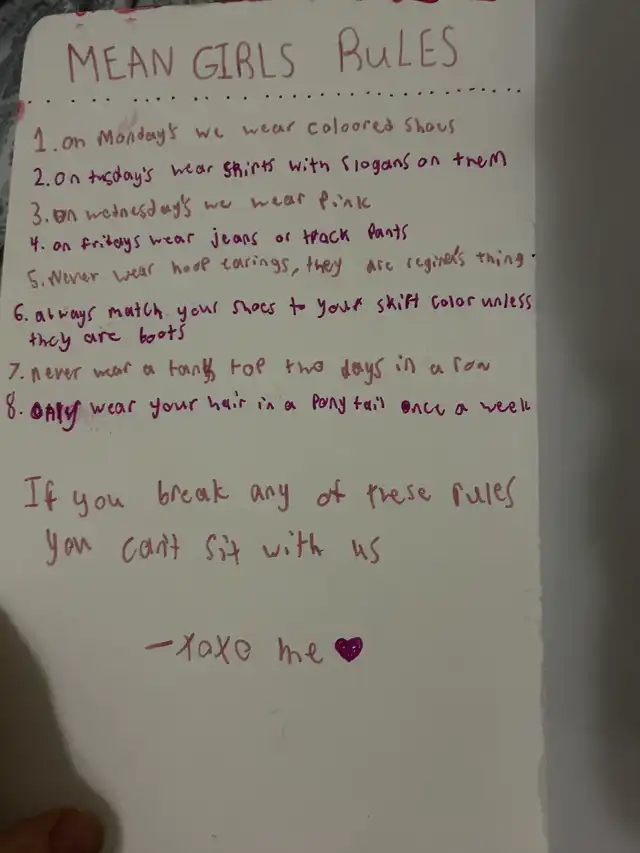 MEAN GIRLS RULES
1. on Monday's we wear coloored shous
2. on tusday's wear shirts with slogans on them
3. on wednesday's we wear pink
4. on fridays wear jeans or track pants
5. Never wear hoop earings, they are regina's thing.
6. always match your shoes to your skirt color unless
they are boots
7. never wear a tank top two days in a row
8. only wear your hair in a pony tail once a week
If you break any of these rules
you can't sit with us
- xoxo me ♥